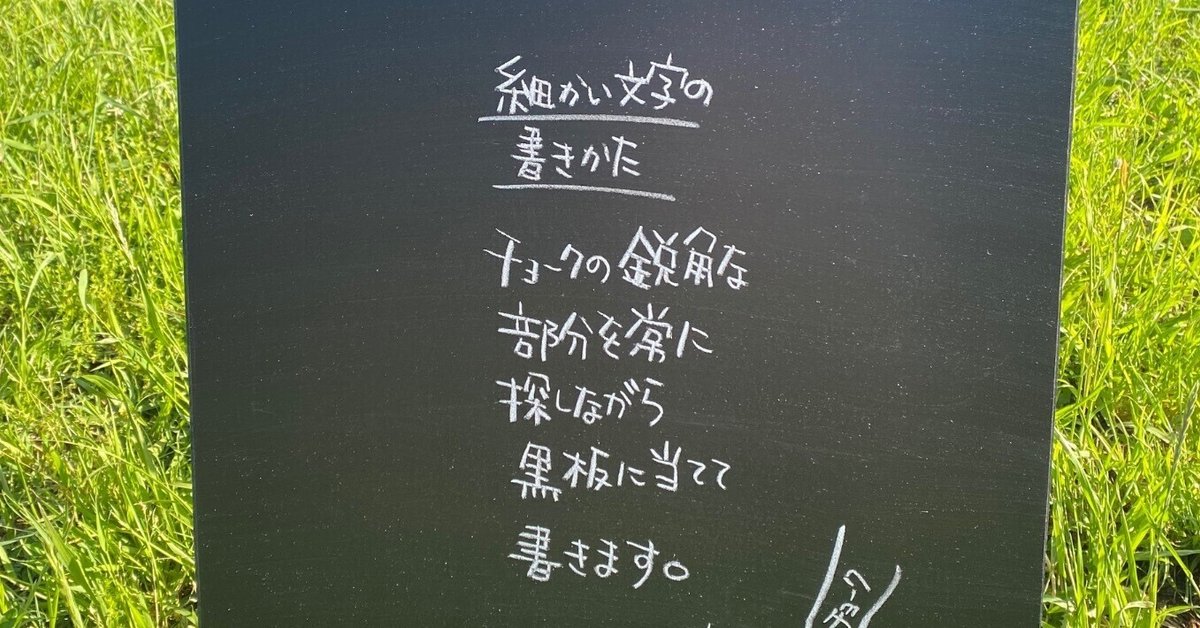 細かい文字の
書きかた
チョークの鋭角な
部分を常に
探しながら
黒板に当てて
書きます。
チョーク